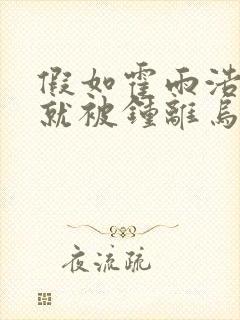 假如霍雨浩
就被鍾離烏
夜流疏